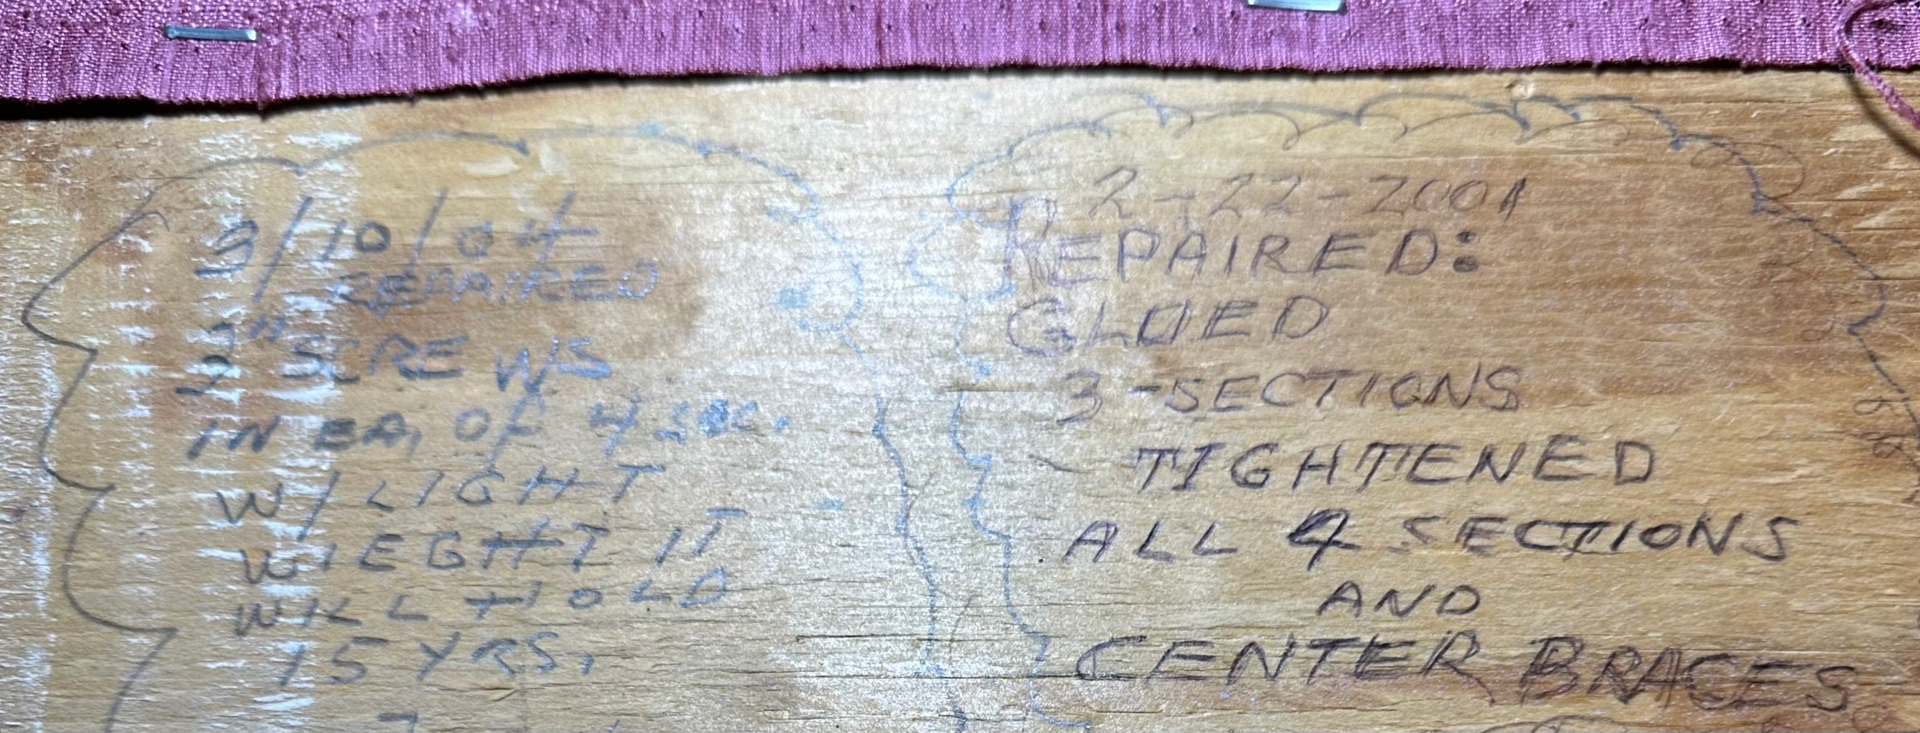 3/10/04
REPAIRED
3" SCREWS
IN EA, OF 4 SEC.
W/LIGHT
WIEGHT IT
WILL HOLD
15 YRS.
2-22-2001
REPAIRED:
GLUED
3-SECTIONS
- TIGHTENED
ALL 4 SECTIONS
AND
CENTER BRACES